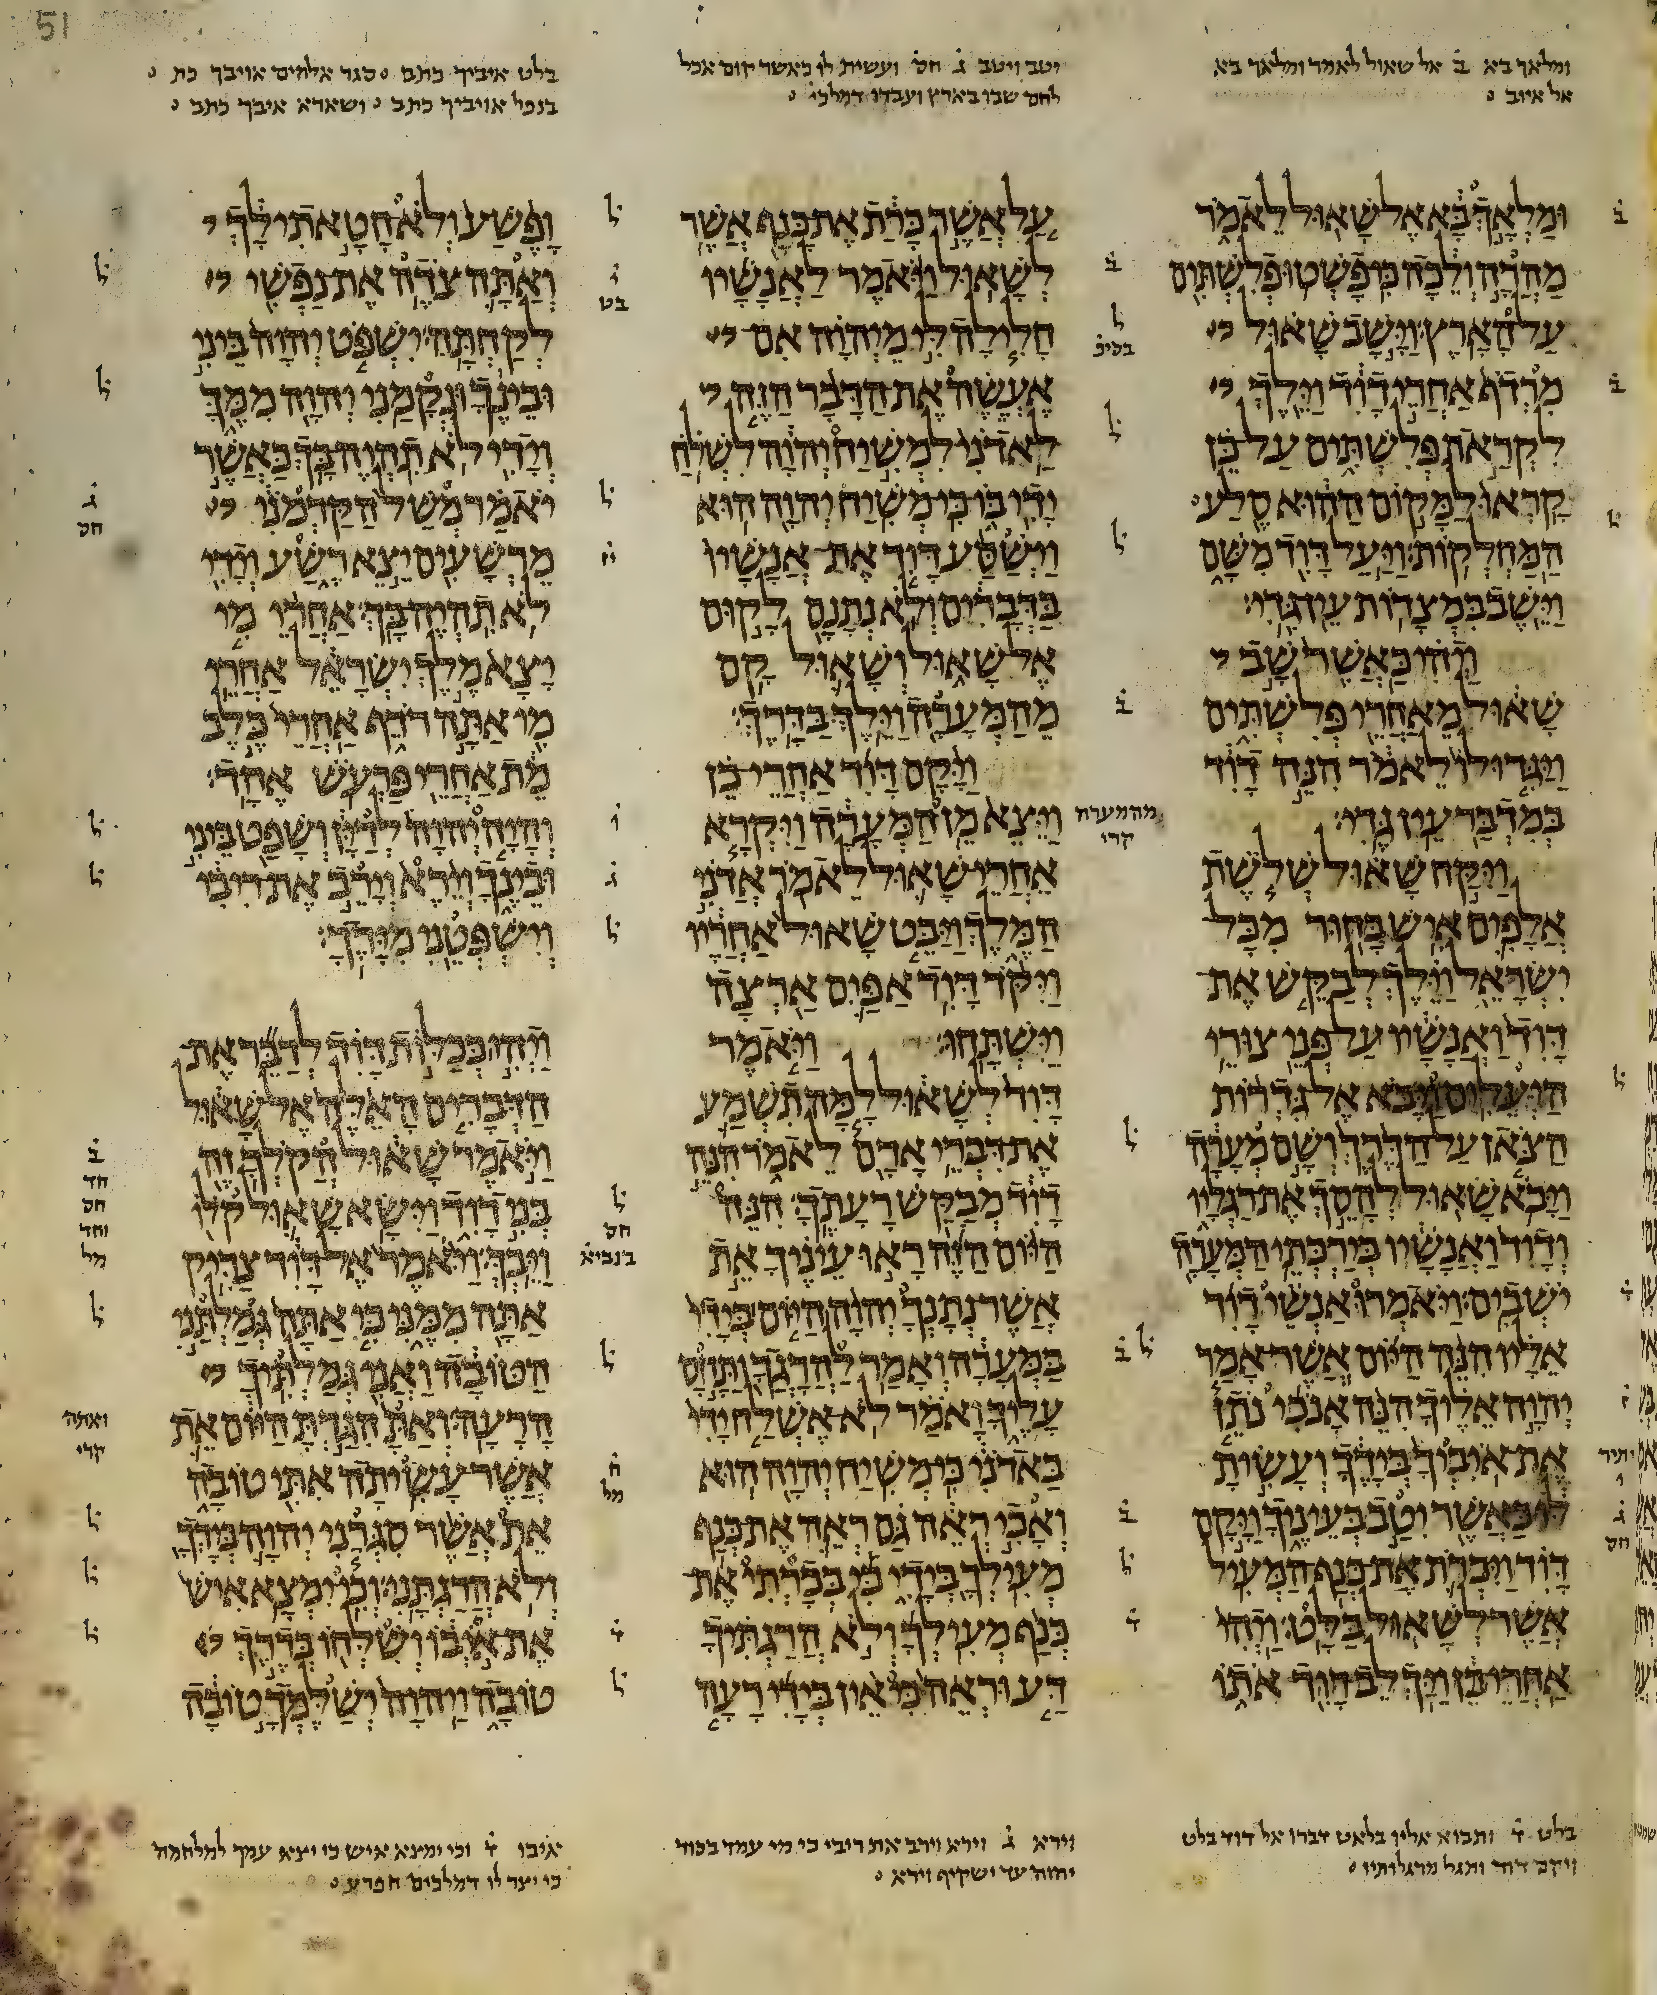 ומלאך בא ב אל שאול לאמר ומלאך בא
אל איוב
ומלאך בא אל שאול לאמר
מהרה ולכה כי פשטו פלשתים
על הארץ וישב שאול
מרדף אחרי דוד וילך
לקראת פלשתים על כן
קראו למקום ההוא סלע
המחלקות ויעל דוד משם
וישב במצדות עין גדי
ויהי כאשר שב
שאול מאחרי פלשתים
ויגדו לו לאמר הנה דוד
במדבר עין גדי
ויקח שאול שלשת
אלפים איש בחור מכל
ישראל וילך לבקש את
דוד ואנשיו על פני צורי
היעלים ויבא אל גדרות
הצאן על הדרך ושם מערה
ויבא שאול להסך את רגליו
ודוד ואנשיו בירכתי המערה
ישבים ויאמרו אנשי דוד
אליו הנה היום אשר אמר
יהוה אליך הנה אנכי נתן
את איביך בידך ועשית
לו כאשר יטב בעיניך ויקם
דוד ויכרת את כנף המעיל
אשר לשאול בלט ויהי
אחרי כן ויך לב דוד אתו
בלט ד ותבוא אליו בלאט דברו אל דוד בלט
ויקם דוד ותגל מרגלותיו
יטב ויטב ג חס ועשית לו כאשר יקום אכל
לחם שבו בארץ ועבדו דמלכי
על אשר כרת את כנף אשר
לשאול ויאמר לאנשיו
חלילה לי מיהוה אם
אעשה את הדבר הזה
לאדני למשיח יהוה לשלח
ידי בו כי משיח יהוה הוא
וישסע דוד את אנשיו
בדברים ולא נתנם לקום
אל שאול ושאול קם
מהמערה וילך בדרך
ויקם דוד אחרי כן
ויצא מן המערה ויקרא
מהמערה
קרי
אחרי שאול לאמר אדני
המלך ויבט שאול אחריו
ויקד דוד אפים ארצה
וישתחו ויאמר
דוד לשאול למה תשמע
את דברי אדם לאמר הנה
דוד מבקש רעתך הנה
היום הזה ראו עיניך את
אשר נתנך יהוה היום בידי
במערה ואמר להרגך ותחס
עליך ואמר לא אשלח ידי
באדני כי משיח יהוה הוא
ואבי ראה גם ראה את כנף
מעילך בידי כי בכרתי את
כנף מעילך ולא הרגתיך
דע וראה כי אין בידי רעה
וירא ג וירא וירב את ריבי כי מי עמד בסוד
יהוה עד ישקיף וירא
ופשע ולא חטאתי לך
ואתה צדה את נפשי
לקחתה ישפט יהוה ביני
ובינך ונקמני יהוה ממך
וידי לא תהיה בך כאשר
יאמר משל הקדמני
מרשעים יצא רשע וידי
לא תהיה בך אחרי מי
יצא מלך ישראל אחרי
מי אתה רדף אחרי כלב
מת אחרי פרעש אחד
והיה יהוה לדין ושפט ביני
ובינך וירא וירב את ריבי
וישפטני מידך
ויהי ככלות דוד לדבר את
הדברים האלה אל שאול
ויאמר שאול הקלך זה
בני דוד וישא שאול קלו
ויבך ויאמר אל דוד צדיק
אתה ממני כי אתה גמלתני
הטובה ואני גמלתיך
הרעה ואת הגדת היום את
ואתה
קרי
אשר עשיתה אתי טובה
את אשר סגרני יהוה בידך
ולא הרגתני וכי ימצא איש
את איבו ושלחו בדרך
טובה ויהוה ישלמך טובה
איבו ד וכי ימצא איש כי יצא עמך למלחמה